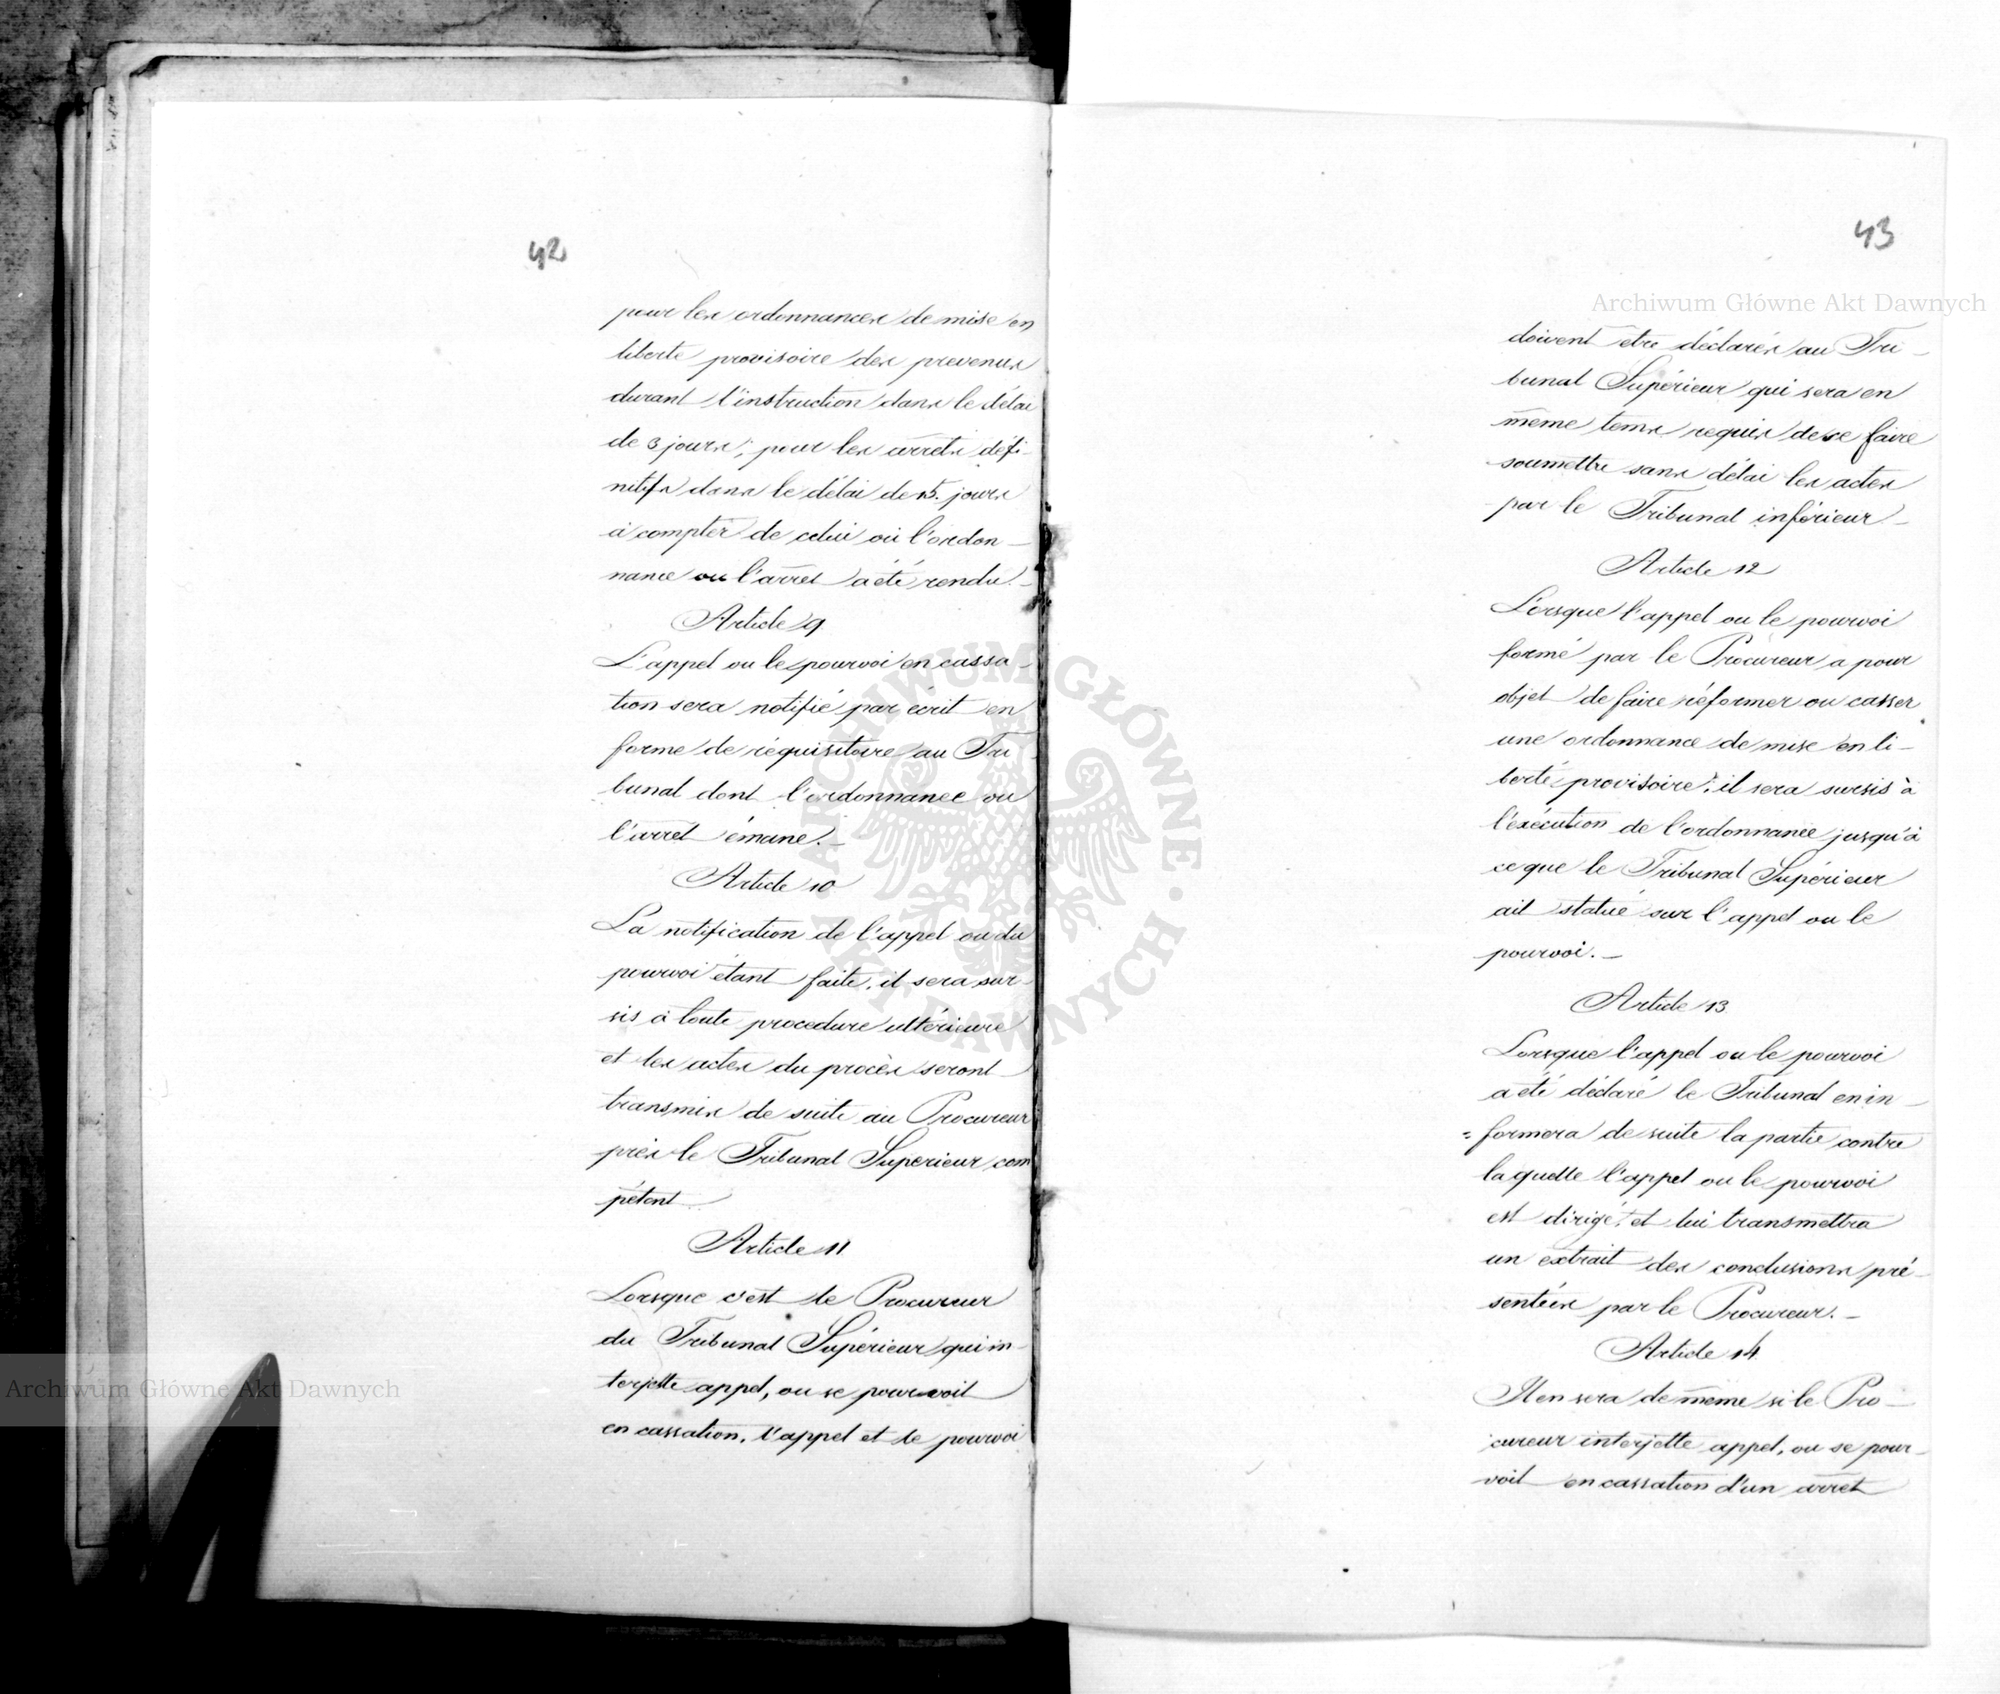 42
pour les ordonnances de mise en
liberte provisoire des prevenus
durant l'instruction dans le délai
de 3 jours; pour les arrets défi-
nitifs dans le délai de 15. jours
à compter de celui où l'ordon-
nance ou l'arret a été rendu.-
Article 9
L'appel ou le pourvoi en cassa-
tion sera notifié par écrit en
forme de réquisitoire au Tri
bunal dont l'ordonnance ou
l'arret émane.-
Article 10
La notification de l'appel ou du
pourvoi étant faite, il sera sur-
sis à toute procedure ultérieure
et les actes du procès seront
transmis de suite au Procureur
près le Tribunal Superieur com
pétent
Article 11
Lorsque c'est le Procureur
du Tribunal Supérieur qui in-
terjette appel, ou se pourvoit
en cassation, l'appel et le pourvoi
43
doivent être déclarés au Tri-
bunal Supérieur qui sera en
même tems requis de se faire
soumettre sans délai les actes
par le Tribunal inférieur-
Article 12
Lorsque l'appel ou le pourvoi
formé par le Procureur a pour
objet de faire réformer ou casser
une ordonnance de mise en li-
berté provisoire, il sera sursis à
l'exécution de l'ordonnance jusqu'à
ce que le Tribunal Supérieur
ait statué sur l'appel ou le
pourvoi.-
Article 13.
Lorsque l'appel ou le pourvoi
a été déclaré le Tribunal en in-
=formera de suite la partie contre
laquelle l'appel ou le pourvoi
est dirigé, et lui transmettra
un extrait des conclusions pré-
sentées par le Procureur.-
Article 14.
Il en sera de même si le Pro-
cureur interjette appel, ou se pour-
voit en cassation d'un arret
Archiwum Główne Akt Dawnych
Archiwum Główne Akt Dawnych
ARCHIWUM GŁÓWNE · AKT DAWNYCH ·